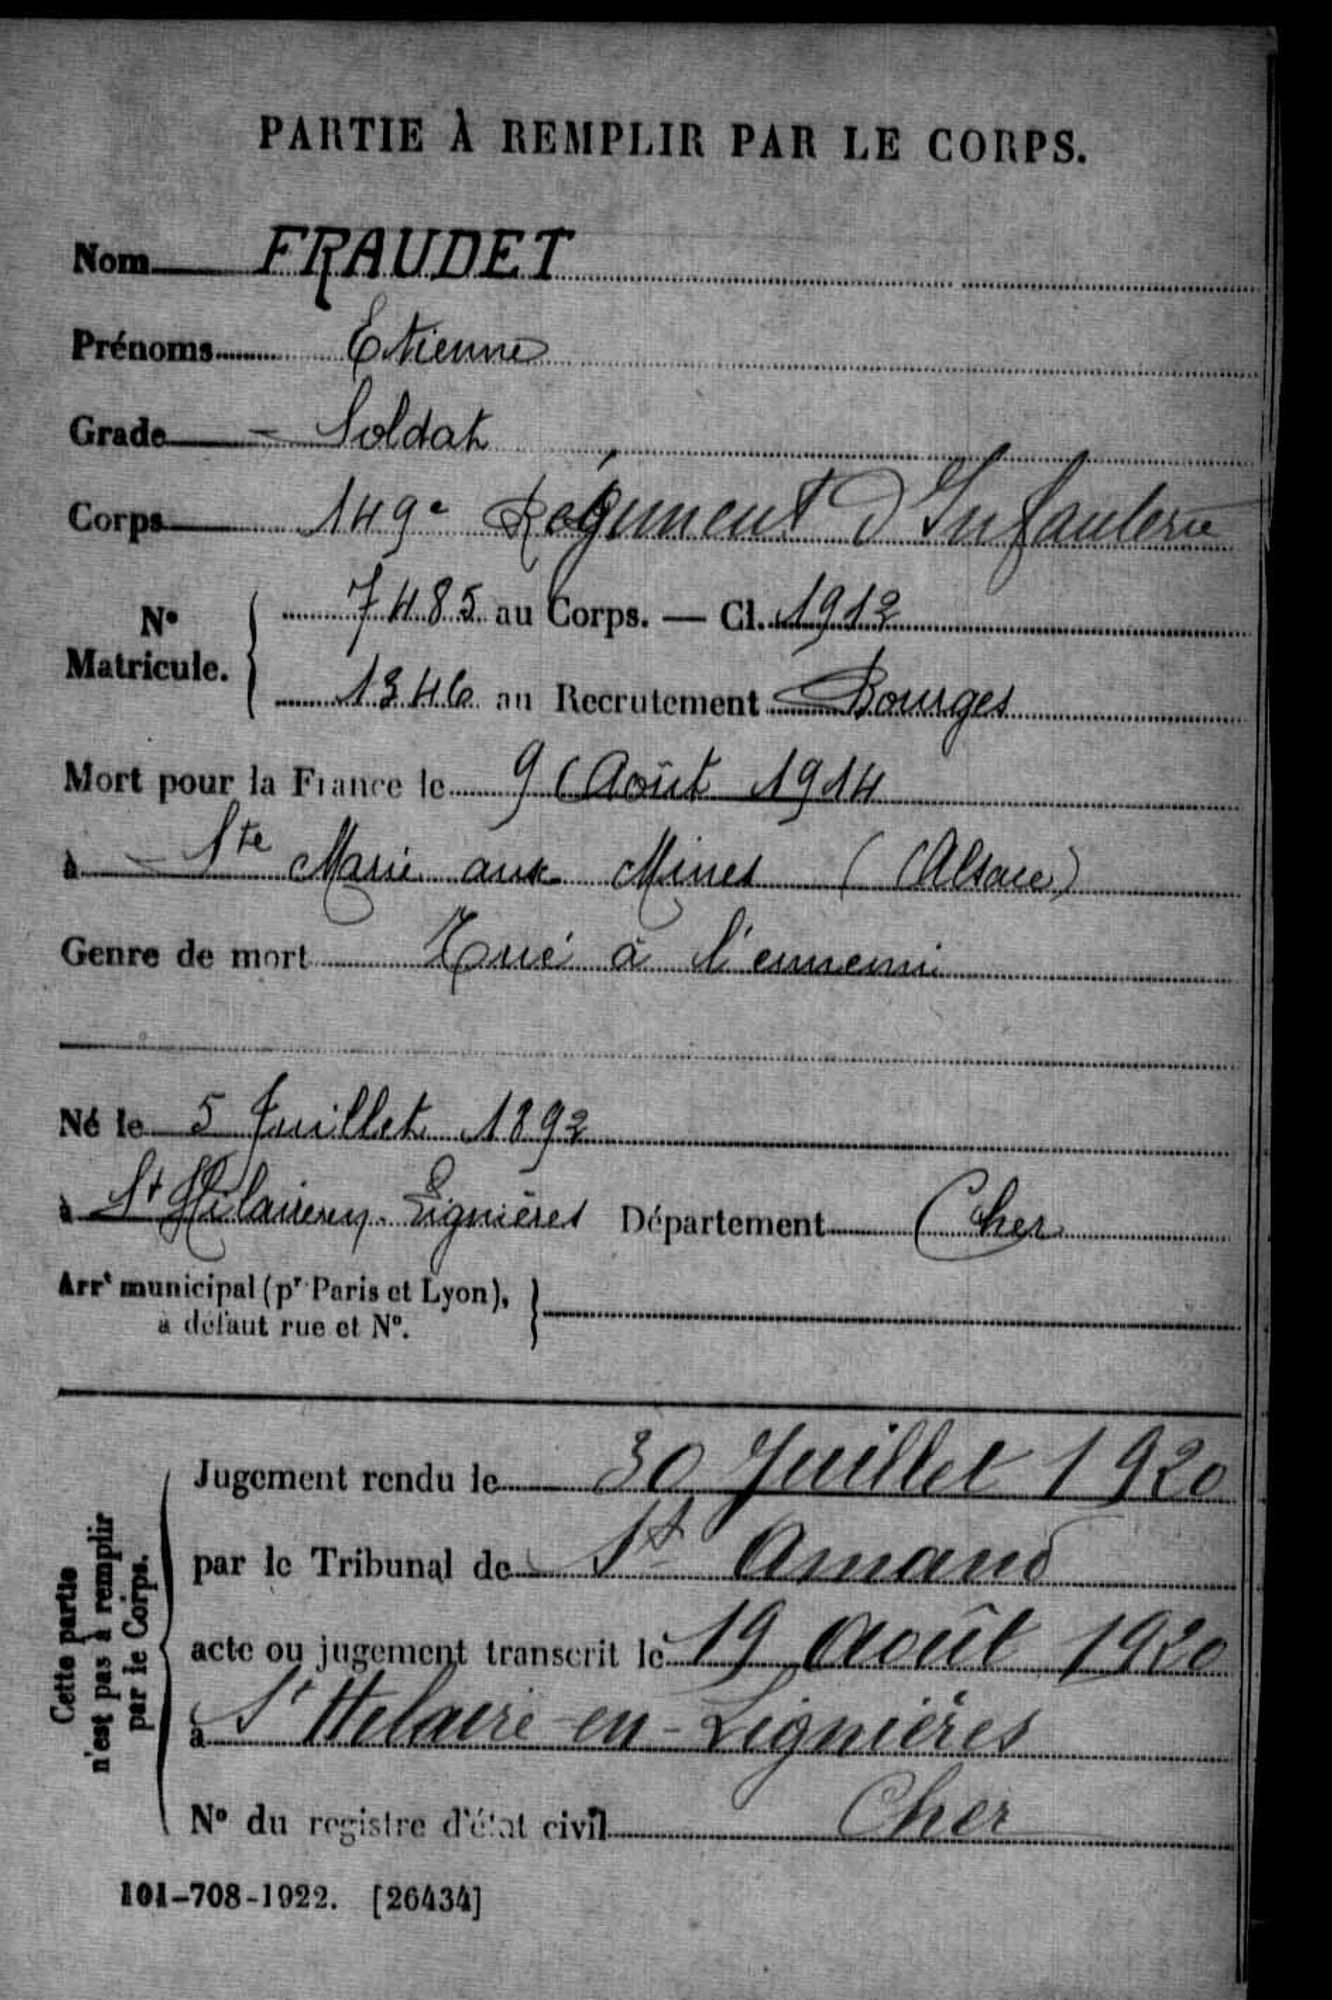 PARTIE À REMPLIR PAR LE CORPS.
Nom FRAUDET
Prénoms Etienne
Grade Soldat
Corps 149e Régiment d'Infanterie
No Matricule. 7485 au Corps. — Cl. 1912
1346 au Recrutement Bourges
Mort pour la France le 9 Août 1914
à Ste Marie aux Mines (Alsace)
Genre de mort Tué à l'ennemi
Né le 5 Juillet 1892
à St Hilaire en Lignières Département Cher
Arrt municipal (pr Paris et Lyon),
à défaut rue et No.
Cette partie
n'est pas à remplir
par le Corps.
Jugement rendu le 30 Juillet 1920
par le Tribunal de St Amand
acte ou jugement transcrit le 19 Août 1920
à St Hilaire-en-Lignières
No du registre d'état civil Cher
101-708-1922. [26434]